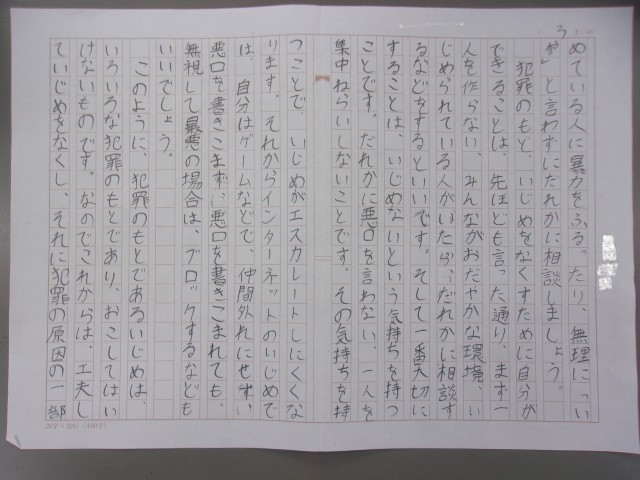 3
めている人に暴力をふるったり、無理に「い
や」と言わずにだれかに相談しましょう。
犯罪のもと、いじめをなくすために自分が
できることは、先ほども言った通り、まず一
人を作らない、みんながおだやかな環境、い
じめられている人がいたら、だれかに相談す
るなどをするといいです。そして一番大切に
することは、いじめないという気持ちを持つ
ことです。だれかに悪口を言わない、一人を
集中ねらいしないことです。その気持ちを持
つことで、いじめがエスカレートしにくくな
ります。それからインターネットのいじめで
は、自分はゲームなどで、仲間外れにせず、
悪口を書きこまず、悪口を書きこまれても、
無視して最悪の場合は、ブロックするなども
いいでしょう。
このように、犯罪のもとであるいじめは、
いろいろな犯罪のもとであり、おこしてはい
けないものです。なのでこれからは、工夫し
ていじめをなくし、それに犯罪の原因の一部
20字×20行(400字)